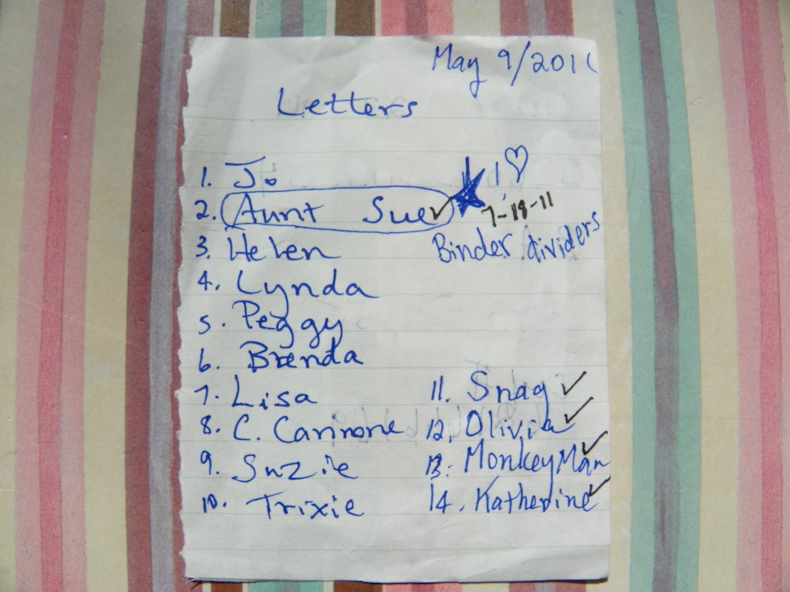 May 9/2011
Letters
1. Jo
2. Aunt Sue ✓ ★ 1 ♡
7-18-11
Binder dividers
3. Helen
4. Lynda
5. Peggy
6. Brenda
7. Lisa
8. C. Carinone
9. Suzie
10. Trixie
11. Snag ✓
12. Olivia ✓
13. MonkeyMan ✓
14. Katherine ✓